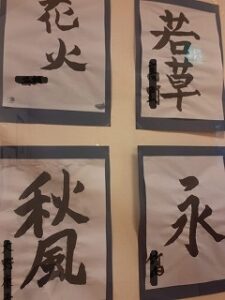 花火
若草
秋風
永